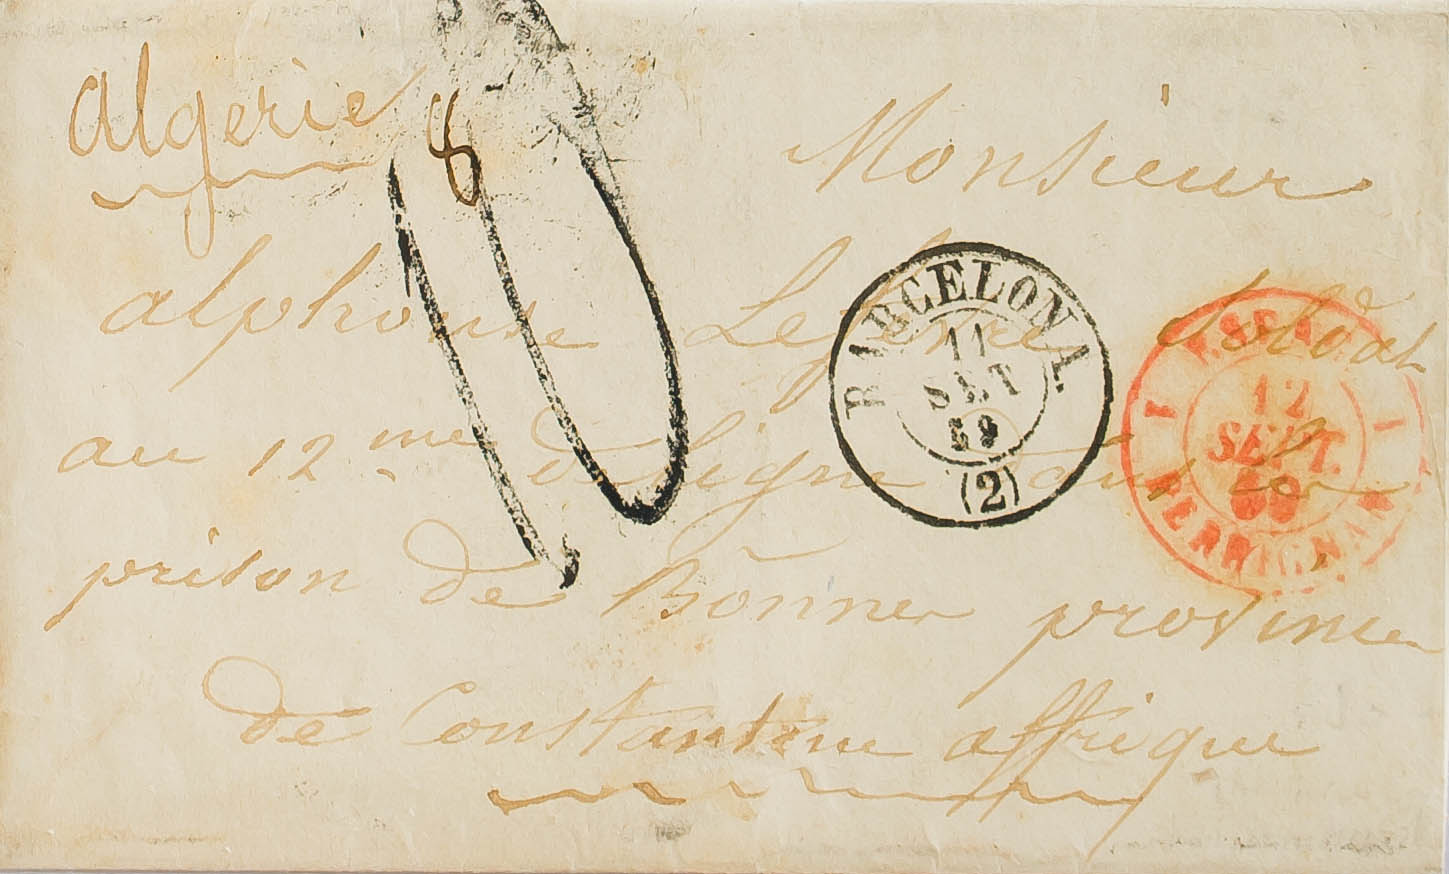 algerie
8
Monsieur
alphonse Lefevre soldat
au 12 me de ligne dans la
prison de Bonne province
de Constantine affrique
BARCELONA.
11
SET
59
(2)
1 ESPAG. 1
12
SEPT.
59
PERPIGNAN